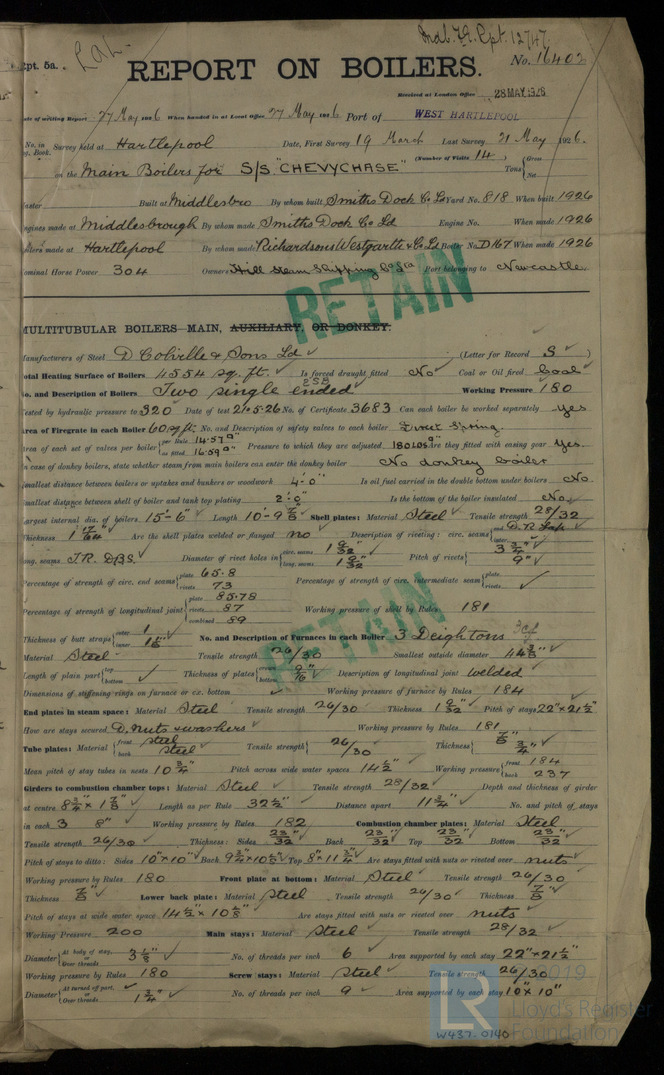 Lah
Mab. F.E. Rpt. 12747.
Rpt. 5a.
REPORT ON BOILERS.
No. 16402
Received at London Office 28 MAY 1926
ate of writing Report 27 May 1926 When handed in at Local Office 27 May 1926 Port of WEST HARTLEPOOL
No. in Survey held at Hartlepool Date, First Survey 19 March Last Survey 21 May 1926.
g. Book. (Number of Visits 14 )
on the Main Boilers for S/S "CHEVYCHASE" Tons { Gross Net
aster Built at Middlesbro By whom built Smiths Dock Co Ld Yard No. 818 When built 1926
ngines made at Middlesbrough By whom made Smiths Dock Co Ld Engine No. When made 1926
oilers made at Hartlepool By whom made Richardsons Westgarth & Co Ld Boiler No. D167 When made 1926
ominal Horse Power 304 Owners Hill Steam Shipping Co Ltd Port belonging to Newcastle
RETAIN
MULTITUBULAR BOILERS—MAIN, AUXILIARY, OR DONKEY.
anufacturers of Steel D Colville & Sons Ld (Letter for Record S )
otal Heating Surface of Boilers 4554 sq. ft. Is forced draught fitted No Coal or Oil fired Coal
o. and Description of Boilers Two single ended 2SB Working Pressure 180
ested by hydraulic pressure to 320 Date of test 21.5.26 No. of Certificate 3683 Can each boiler be worked separately Yes
rea of Firegrate in each Boiler 60 sq ft. No. and Description of safety valves to each boiler Direct Spring
rea of each set of valves per boiler { per Rule 14.57 □" as fitted 16.59 □" Pressure to which they are adjusted 180 lbs □" Are they fitted with easing gear Yes.
n case of donkey boilers, state whether steam from main boilers can enter the donkey boiler No donkey boiler
mallest distance between boilers or uptakes and bunkers or woodwork 4'-0" Is oil fuel carried in the double bottom under boilers No.
mallest distance between shell of boiler and tank top plating 2'-0" Is the bottom of the boiler insulated No.
argest internal dia. of boilers 15'-6" Length 10'-9 7/8 Shell plates: Material Steel Tensile strength 28/32
Thickness 1 17/64" Are the shell plates welded or flanged no Description of riveting: circ. seams { end D.R. Lap inter.
ong. seams T.R. DBS. Diameter of rivet holes in { circ. seams 1 9/32 long. seams 1 9/32 Pitch of rivets { 3 3/4" 9"
Percentage of strength of circ. end seams { plate 65.8 rivets 73 Percentage of strength of circ. intermediate seam { plate rivets
Percentage of strength of longitudinal joint { plate 85.78 rivets 87 combined 89 Working pressure of shell by Rules 181
RETAIN
Thickness of butt straps { outer 1 inner 1 1/8" No. and Description of Furnaces in each Boiler 3 Deightons 3cf
Material Steel Tensile strength 26/30 Smallest outside diameter 44 3/4"
Length of plain part { top bottom Thickness of plates { crown bottom 9/16" Description of longitudinal joint welded
Dimensions of stiffening rings on furnace or c.c. bottom Working pressure of furnace by Rules 184
End plates in steam space: Material Steel Tensile strength 26/30 Thickness 1 9/32" Pitch of stays 22" x 21 1/2"
How are stays secured D. nuts & washers Working pressure by Rules 181
Tube plates: Material { front steel back steel Tensile strength { 26/30 Thickness { 7/8" 3/4"
Mean pitch of stay tubes in nests 10 3/4" Pitch across wide water spaces 14 1/2" Working pressure { front 184 back 237
Girders to combustion chamber tops: Material Steel Tensile strength 28/32 Depth and thickness of girder
at centre 8 3/4" x 1 7/8" Length as per Rule 32 1/2" Distance apart 11 3/4" No. and pitch of stays
in each 3 8" Working pressure by Rules 182 Combustion chamber plates: Material Steel
Tensile strength 26/30 Thickness: Sides 23/32" Back 23/32" Top 23/32" Bottom 23/32"
Pitch of stays to ditto: Sides 10" x 10" Back 9 3/4" x 10 1/8" Top 8" x 11 3/4" Are stays fitted with nuts or riveted over nuts
Working pressure by Rules 180 Front plate at bottom: Material Steel Tensile strength 26/30
Thickness 7/8" Lower back plate: Material Steel Tensile strength 26/30 Thickness 7/8"
Pitch of stays at wide water space 14 1/2" x 10 1/8" Are stays fitted with nuts or riveted over nuts
Working Pressure 200 Main stays: Material Steel Tensile strength 28/32
Diameter { At body of stay, or Over threads 3 1/8" No. of threads per inch 6 Area supported by each stay 22" x 21 1/2"
Working pressure by Rules 180 Screw stays: Material Steel Tensile strength 26/30
Diameter { At turned off part, or Over threads 1 3/4" No. of threads per inch 9 Area supported by each stay 10" x 10"
LR
2019
Lloyd's Register
Foundation
W437-0140